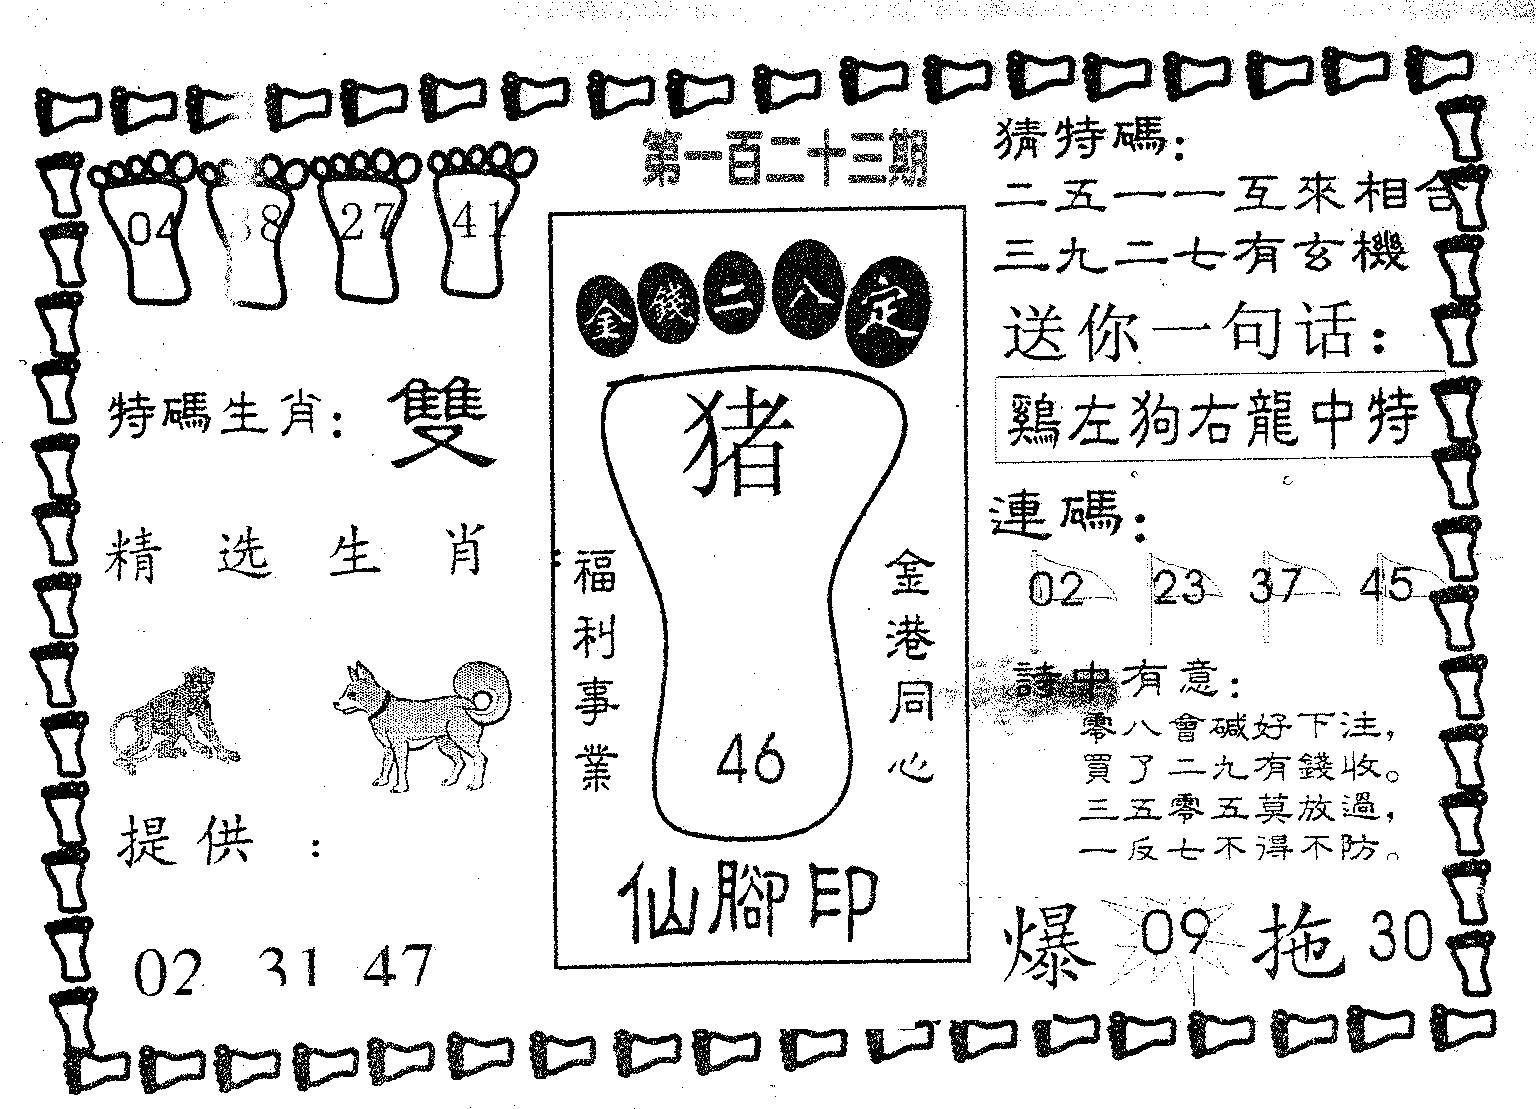 第一百二十三期
04 38 27 41
特碼生肖：雙
精选生肖：
提供：
02 31 47
金錢二八定
猪
福利事業
金港同心
46
仙腳印
猜特碼：
二五一一互來相合
三九二七有玄機
送你一句话：
鷄左狗右龍中特
連碼：
02 23 37 45
詩中有意：
零八會碱好下注，
買了二九有錢收。
三五零五莫放過，
一反七不得不防。
爆 09 拖 30